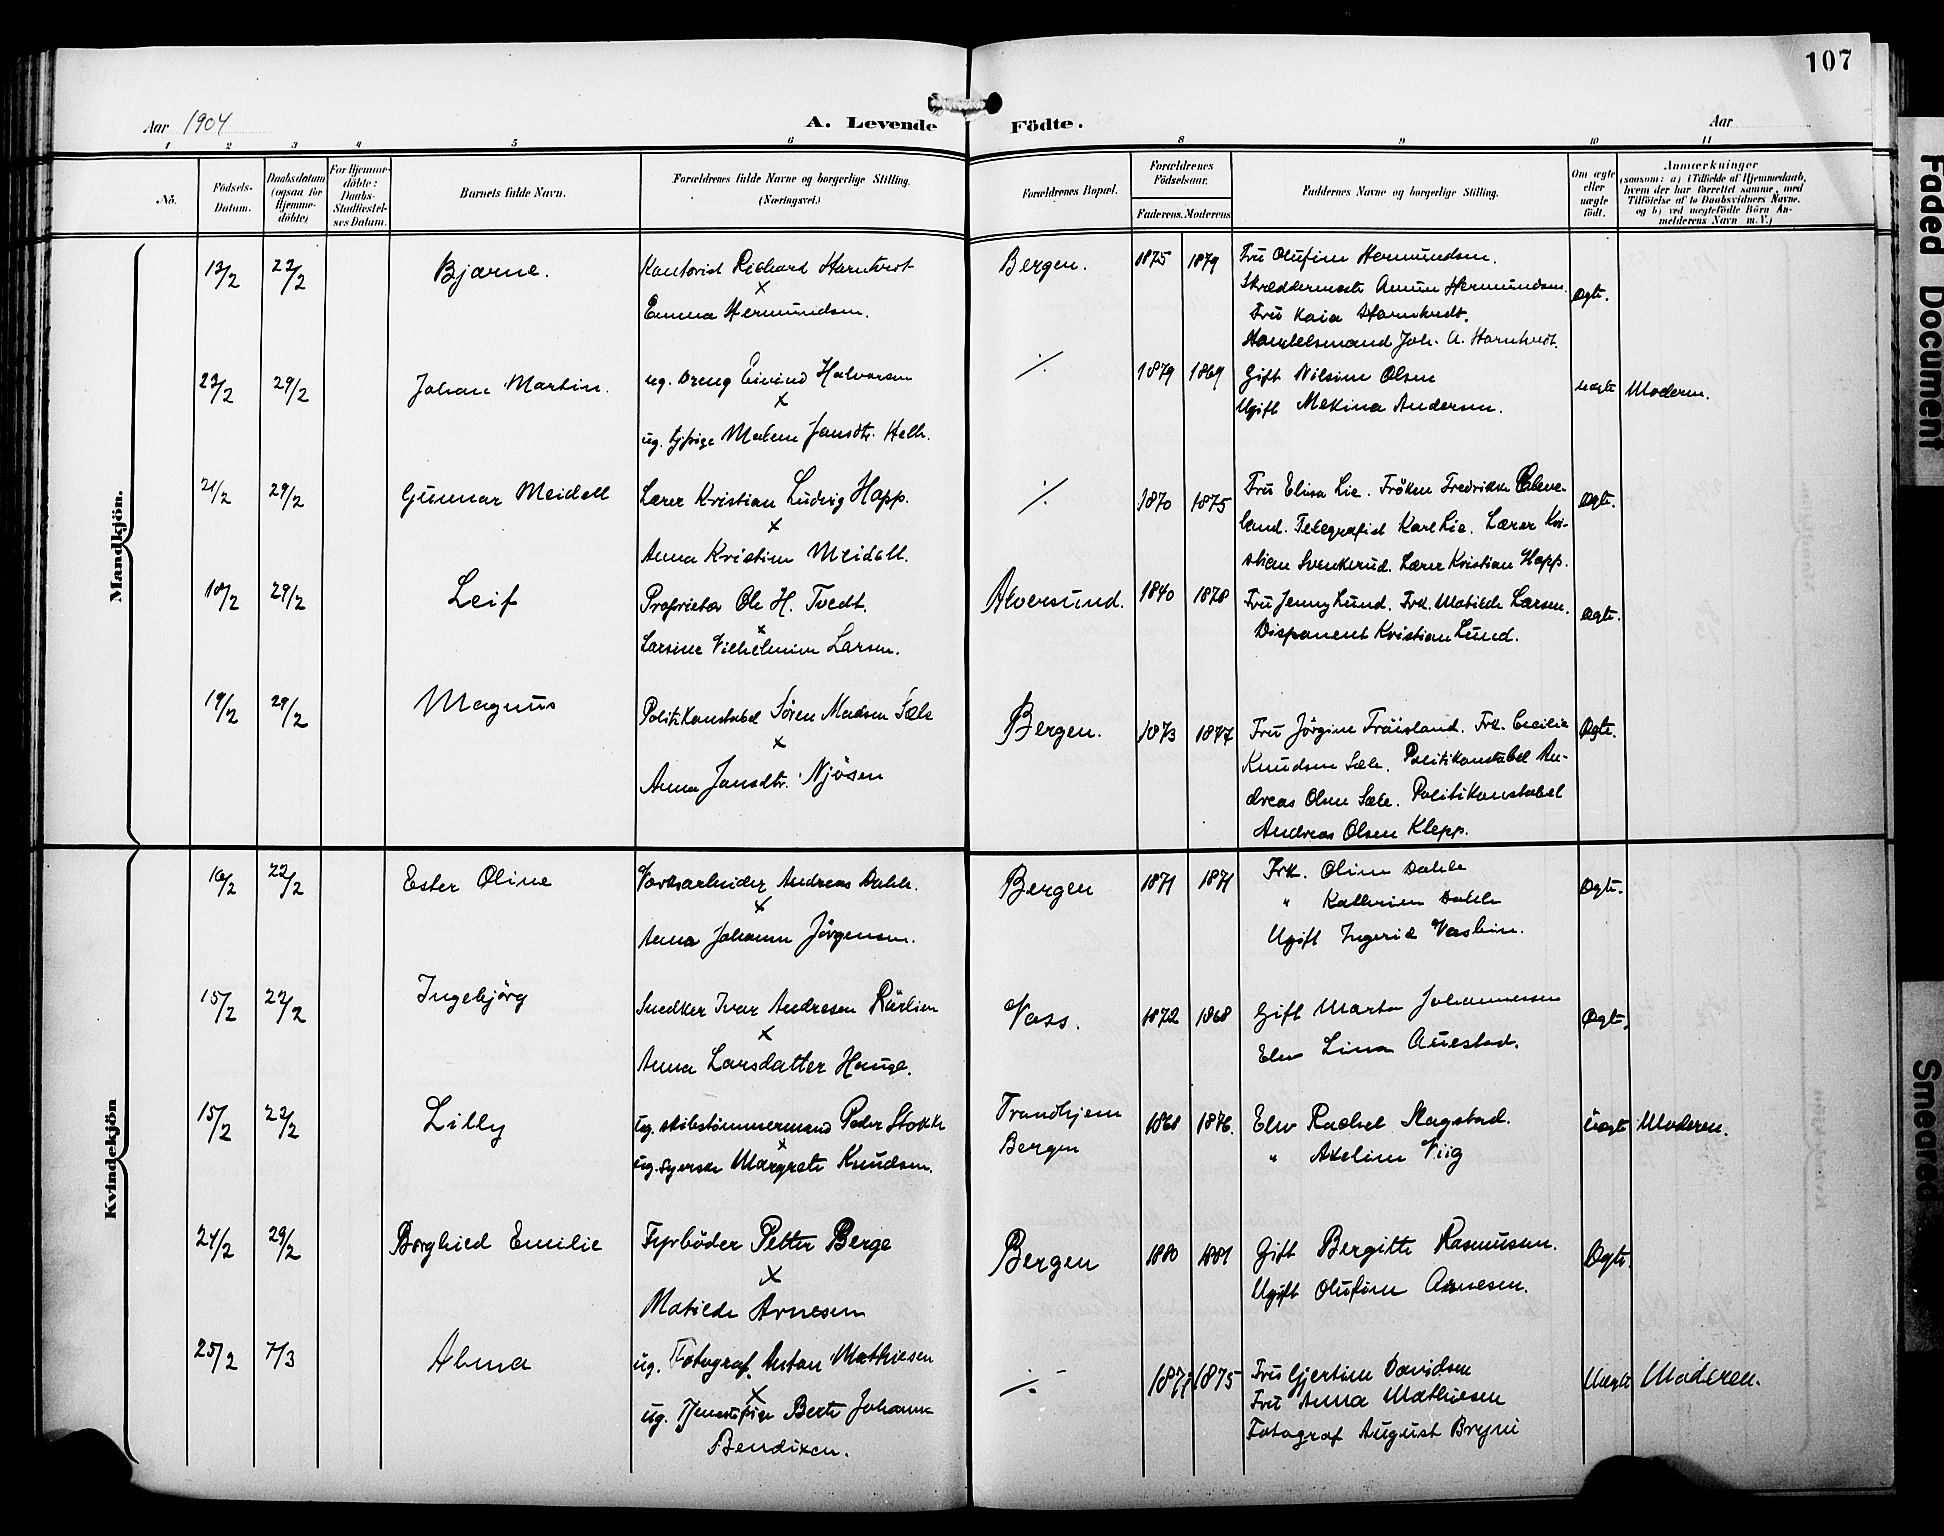 107
Aar 1904
A. Levende Födte.
Aar
1 2 3 4 5 6 8 9 10 11
No.
Födsels-Datum.
Daabsdatum (ogsaa for Hjemme-döbte)
For Hjemme-döbte: Daabs-Stadfæstel-ses Datum.
Barnets fulde Navn.
Forældrenes fulde Navne og borgerlige Stilling. (Næringsvei.)
Forældrenes Bopæl.
Forældrenes Födselsaar.
Faderens. Moderens.
Faddernes Navne og borgerlige Stilling.
Om ægte eller uægte födt.
Anmærkninger
(saasom: a) i Tilfælde af Hjemmedaab,
hvem der har forrettet samme, med
Tilföielse af to Daabsvidners Navne.
og b) ved uægtefödte Börn An-
melderens Navn m. V.)
Mandkjön.
13/2 22/2 Bjarne. Kontorist Richard Harnhvedt Bergen. 1875 1879 Fru Olufine Hermundsen.
x Skræddermester Hermundsen. Ægte.
Emma Hermundsen. Fru Kaia Harnhvedt.
Handelsmand Joh. A. Harnhvedt.
23/2 29/2 Johan Martin. ug. Dreng Eivind Halvorsen ./. 1879 1869 Gift Nilsine Olsen uægte Moderen.
x Ugift Mekina Andersen.
ug. tjpige Malene Jansdtr. Helle.
21/2 29/2 Gunnar Meidell Lærer Kristian Ludvig Hopp. ./. 1870 1875 Fru Elisa Lie. Fröken Fredrikke Cleve-
x land. Telegrafist Karl Lie. Lærer Kri- Ægte.
Anna Kristine Meidell. stian Svenkerud. Lærer Kristian Hopp.
10/2 29/2 Leif Proprietær Ole H. Tvedt. Alversund. 1840 1878 Fru Jenny Lund. Frk. Matilde Larsen. Ægte.
x Disponent Kristian Lund.
Larsine Vilhelmine Larsen.
19/2 29/2 Magnus Politikonstabel Sören Madsen Sæle Bergen. 1873 1877 Fru Jörgine Fröisland. Frk. Cecilie Ægte.
x Knudsen Sæle. Politikonstabel An-
Anna Jansdtr. Njösen dreas Olsen Sæle. Politikonstabel
Andreas Olsen Klepp.
Kvindekjön
16/2 22/2 Ester Oline Værksarbeider Andreas Dahle. Bergen 1871 1871 Frk. Oline Dahle Ægte.
x " Kathrine Dahle
Anna Johanne Jörgensen. Ugift Ingerid
15/2 22/2 Ingebjörg Snedker Ivar Andresen Voss. 1872 1868 Gift Marta Johannessen Ægte.
x Elev Lina Auestad.
Anna Larsdatter Hauge.
15/2 22/2 Lilly ug. skibstömmermand Peder Stokke Trondhjem 1868 1876. Elev Rachel Magstad. Uægte Moderen.
x Bergen " Axeline Viig
ug. syerske Margrete Knudsen.
21/2 29/2 Borghild Emilie Fyrböder Petter Berge Bergen 1880 1881 Gift Bergitte Rasmussen. Ægte.
x Ugift Olufine Arnesen.
Matilde Arnesen
25/2 7/3 Alma ug. Fotograf. Anton Mathiesen ./. 1877 1875 Fru Gjertine Davidsen Uægte Moderen.
x Fru Anna Mathiesen
ug. Tjenestepige Berte Johanne Fotograf August Bryni
Bendixen.
Faded Document
Smeared